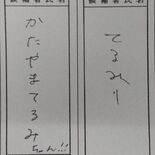 候補者氏名
かたやまてるみ
ちゃん!!
候補者氏名
てるみ